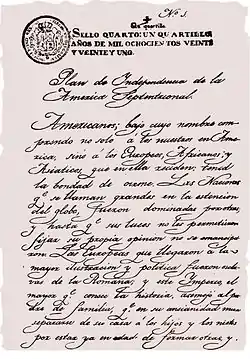 N.º 1.
Un quartillo
SELLO QUARTO: UN QUARTILLO
AÑOS DE MIL OCHOCIENTOS VEINTE
Y VEINTE Y UNO.
Plan de Independencia de la
America Septentrional.
Americanos; bajo cuyo nombre com
prendo no solo á los nacidos en Amé
rica, sino á los Europeos, Africanos, y
Asiaticos, que en ella reciden: tened
la bondad de oirme. Las Naciones
q.e se llaman grandes en la estension
del globo, fueron dominadas por otras,
y hasta q.e sus luces no les permitieron
fijar su propia opinion no se emancipa
ron. Las Europeas que llegaron á la
mayor ilustracion y politica fueron escla
vas de la Romana; y este Imperio, el
mayor q.e conoce la historia, asemejó al pa
dre de familia, q.e en su ancianidad mira
separarse de su casa á los hijos y los nietos
por estar ya en edad de formar otras, y